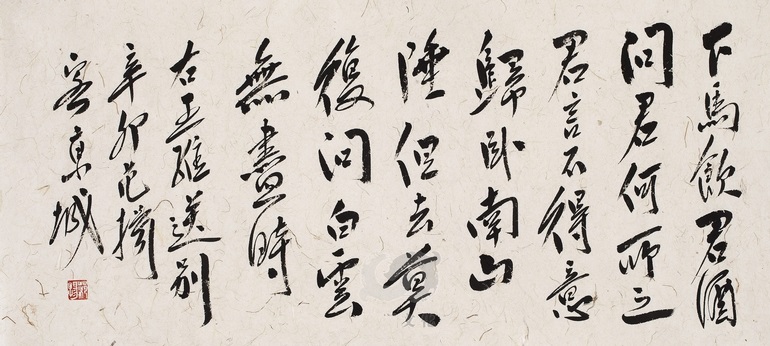 下馬飲君酒
問君何所之
君言不得意
歸卧南山
陲但去莫
復問白雲
無盡時
右王維送別
辛卯范揚
客京城